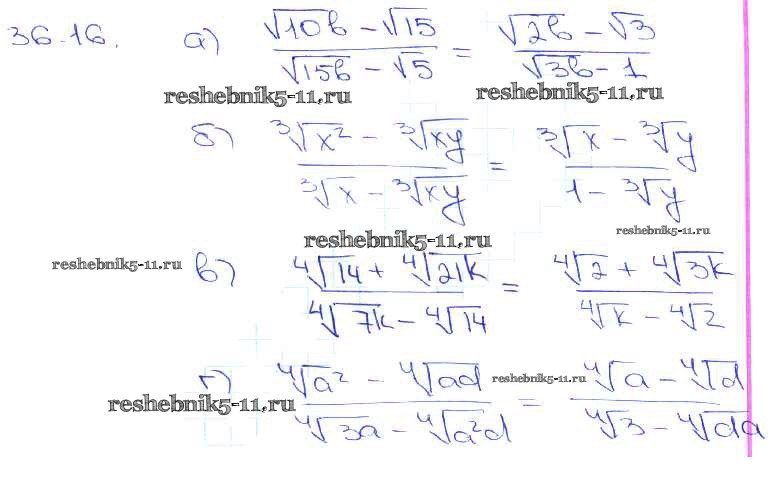 36.16. а) (√10b − √15)/(√15b − √5) = (√2b − √3)/(√3b − 1)
reshebnik5-11.ru reshebnik5-11.ru
б) (∛x² − ∛xy)/(∛x − ∛xy) = (∛x − ∛y)/(1 − ∛y)
reshebnik5-11.ru
reshebnik5-11.ru
reshebnik5-11.ru
в) (∜14 + ∜21k)/(∜7k − ∜14) = (∜2 + ∜3k)/(∜k − ∜2)
г) (∜a² − ∜ad)/(∜3a − ∜a²d) = (∜a − ∜d)/(∜3 − ∜da)
reshebnik5-11.ru
reshebnik5-11.ru